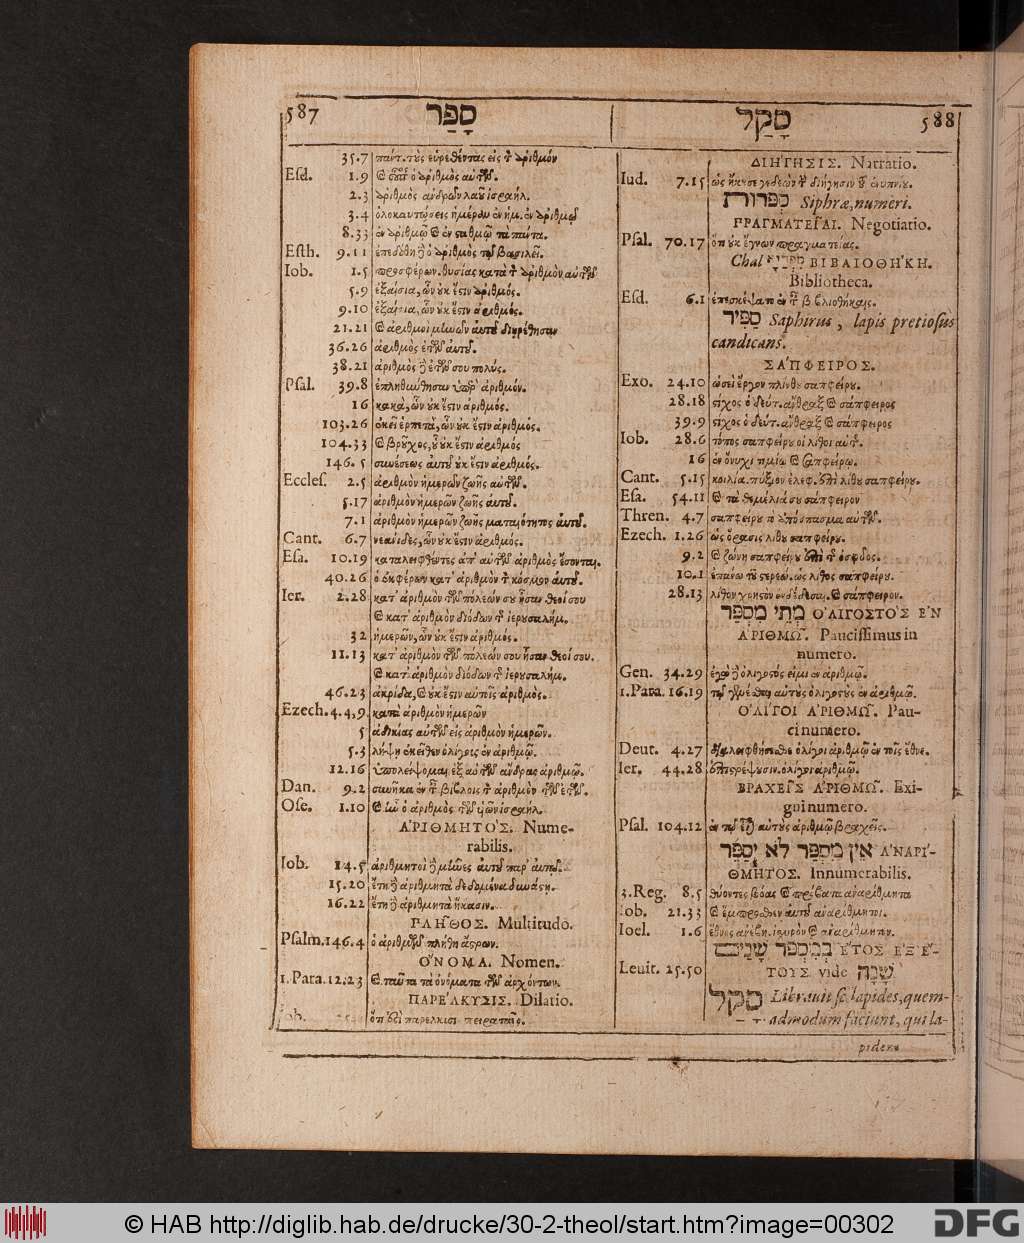 587 סָפַר
35.7 παντ. τοὺς εὑρεθέντας εἰς τ ἀριθμόν
Esd. 1.9 ὁ ἀριθμὸς αὐτῶν.
2.3 ἀριθμὸς ἀνδρῶν λαοῦ ἰσραήλ.
3.4 ὁλοκαυτώσεις ἡμέραν ἐν ἡμ. ἐν ἀριθμῷ
8.33 ἐν ἀριθμῷ ἐν σταθμῷ τὰ πάντα.
Esth. 9.11 ἐπεδόθη ὁ ἀριθμὸς τῷ βασιλεῖ.
Iob. 1.5 προσφέρων. θυσίας κατὰ τ ἀριθμὸν αὐτῶν
5.9 ἐξαίσια, ὧν οὐκ ἔστιν ἀριθμός.
9.10 ἐξαίσια, ὧν οὐκ ἔστιν ἀριθμός.
21.21 ἀριθμοὶ μηνῶν αὐτοῦ διῃρέθησαν
36.26 ἀριθμὸς ἐτῶν αὐτοῦ.
38.21 ἀριθμὸς ἐτῶν σου πολύς.
Psal. 39.8 ἐπληθύνθησαν ὑπὲρ ἀριθμόν.
16 κακὰ, ὧν οὐκ ἔστιν ἀριθμός.
103.26 ἐκεῖ ἑρπετὰ, ὧν οὐκ ἔστιν ἀριθμός.
104.33 βροῦχος, οὗ οὐκ ἔστιν ἀριθμός
146.5 συνέσεως αὐτοῦ οὐκ ἔστιν ἀριθμός.
Eccles. 2.5 ἀριθμὸν ἡμερῶν ζωῆς αὐτῶν.
5.17 ἀριθμὸν ἡμερῶν ζωῆς αὐτοῦ.
7.1 ἀριθμὸν ἡμερῶν ζωῆς ματαιότητος αὐτοῦ.
Cant. 6.7 νεανίδες, ὧν οὐκ ἔστιν ἀριθμός.
Esa. 10.19 καταλειφθέντες ἀπ' αὐτῶν ἀριθμὸς ἔσονται.
40.26 ὁ ἐκφέρων κατ' ἀριθμὸν τ κόσμον αὐτοῦ.
Ier. 2.28 κατ' ἀριθμὸν τῶν πόλεών σου ἦσαν θεοί σου
κατ' ἀριθμὸν διόδων τ ἱερουσαλήμ.
32 ἡμερῶν, ὧν οὐκ ἔστιν ἀριθμός.
11.13 κατ' ἀριθμὸν τῶν πόλεών σου ἦσαν θεοί σου.
κατ' ἀριθμὸν διόδων τ ἱερουσαλήμ.
46.23 ἀκρίδα, οὐκ ἔστιν αὐτοῖς ἀριθμός.
Ezech. 4.4,9. κατὰ ἀριθμὸν ἡμερῶν
5 ἀδικίας αὐτῶν εἰς ἀριθμὸν ἡμερῶν.
5.3 λήψῃ ἐκεῖθεν ὀλίγους ἐν ἀριθμῷ.
12.16 ὑπολείψομαι ἐξ αὐτῶν ἄνδρας ἀριθμῷ.
Dan. 9.2 συνῆκα ἐν τ βίβλοις τ ἀριθμὸν τῶν ἐτῶν.
Ose. 1.10 ἦν ὁ ἀριθμὸς τῶν υἱῶν ἰσραήλ.
ἈΡΙΘΜΗΤΟΣ. Nume-
rabilis.
Iob. 14.5 ἀριθμητοὶ μῆνες αὐτοῦ παρ' αὐτοῦ.
15.20 ἔτη ἀριθμητὰ δεδομένα δυνάστῃ.
16.22 ἔτη ἀριθμητὰ ἥκασιν.
ΠΛΗΘΟΣ. Multitudo.
Psalm. 146.4 ὁ ἀριθμῶν πλήθη ἄστρων.
ὌΝΟΜΑ. Nomen.
1. Para. 12.23 ταῦτα τὰ ὀνόματα τῶν ἀρχόντων.
ΠΑΡΕΛΚΥΣΙΣ. Dilatio.
סָקַל 588
ΔΙΗΓΗΣΙΣ. Narratio.
Iud. 7.15 ὡς ἤκουσε γεδεὼν τ διήγησιν τ ἐνυπνίου.
סִפְרוֹת Siphræ, numeri.
ΠΡΑΓΜΑΤΕΙΑΙ. Negotiatio.
Psal. 70.17 ὅτι οὐκ ἔγνων πραγματείας.
Chal ספריא ΒΙΒΛΙΟΘΗΚΗ.
Bibliotheca.
Esd. 6.1 ἐπεσκέψατο ἐν τ βιβλιοθήκαις.
סַפִּיר Saphirus, lapis pretiosus
candicans.
ΣΑΠΦΕΙΡΟΣ.
Exo. 24.10 ὡσεὶ ἔργον πλίνθου σαπφείρου.
28.18 στίχος ὁ δεύτ. ἄνθραξ σάπφειρος
39.9 στίχος ὁ δεύτ. ἄνθραξ σάπφειρος
Iob. 28.6 τόπος σαπφείρου οἱ λίθοι αὐτ.
16 ἐν ὄνυχι τιμίῳ σαπφείρῳ.
Cant. 5.15 κοιλία. πυξίον ἐλεφ. ἐπὶ λίθου σαπφείρου.
Esa. 54.11 τὰ θεμέλιά σου σάπφειρον
Thren. 4.7 σαπφείρου τὸ ἀπόσπασμα αὐτῶν.
Ezech. 1.26 ὡς ὅρασις λίθου σαπφείρου.
9.2 ζώνη σαπφείρου ἐπὶ τ ὀσφύος.
10.1 ἐπάνω τοῦ στερεώ. ὡς λίθος σαπφείρου.
28.13 λίθον χρηστὸν ἐνδέδεσαι. σάπφειρον.
מְתֵי מִסְפָּר ὈΛΙΓΟΣΤΟΣ ἘΝ
ἈΡΙΘΜΩ. Paucissimus in
numero.
Gen. 34.29 ἐγὼ ὀλιγοστός εἰμι ἐν ἀριθμῷ.
1. Para. 16.19 τῷ γενέσθαι αὐτοὺς ὀλιγοστοὺς ἐν ἀριθμῷ.
ὈΛΙΓΟΙ ἈΡΙΘΜΩ. Pau-
ci numero.
Deut. 4.27 καταλειφθήσεσθε ὀλίγοι ἀριθμῷ ἐν τοῖς ἔθνε.
Ier. 44.28 ἐπιστρέψουσιν. ὀλίγοι ἀριθμῷ.
ΒΡΑΧΕΙΣ ἈΡΙΘΜΩ. Exi-
gui numero.
Psal. 104.12 ἐν τῷ εἶναι αὐτοὺς ἀριθμῷ βραχεῖς.
אֵין מִסְפָּר לֹא יִסָּפֵר ἈΝΑΡΙ-
ΘΜΗΤΟΣ. Innumerabilis.
3. Reg. 8.5 θύοντες βόας πρόβατα ἀναρίθμητα
Iob. 21.33 ἔμπροσθεν αὐτοῦ ἀναρίθμητοι.
Ioel. 1.6 ἔθνος ἀνέβη. ἰσχυρὸν ἀναρίθμητον.
בְּמִסְפַּר שָׁנִים ἜΤΟΣ ἘΞ Ἔ-
ΤΟΥΣ vide שָׁנָה
Levit. 25.50
סָקַל Librauit sc. lapides, quem-
admodum faciunt, qui la-
pidere
© HAB http://diglib.hab.de/drucke/30-2-theol/start.htm?image=00302 DFG